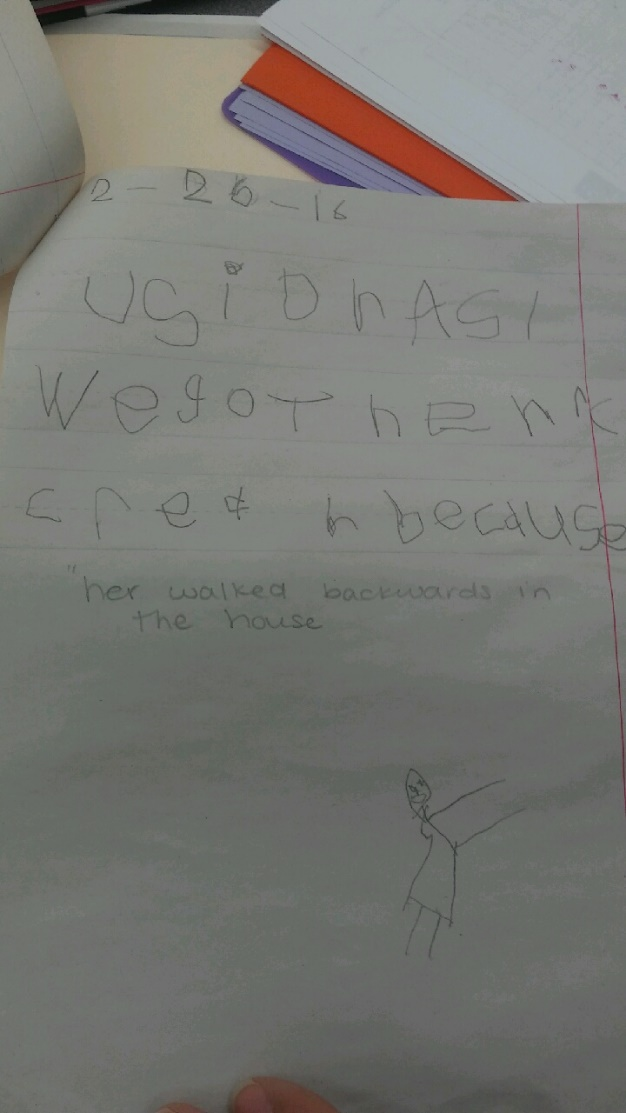 2 - 26 - 16
USiDhASI
WegoT hEnk
cred h because
"her walked backwards in
the house